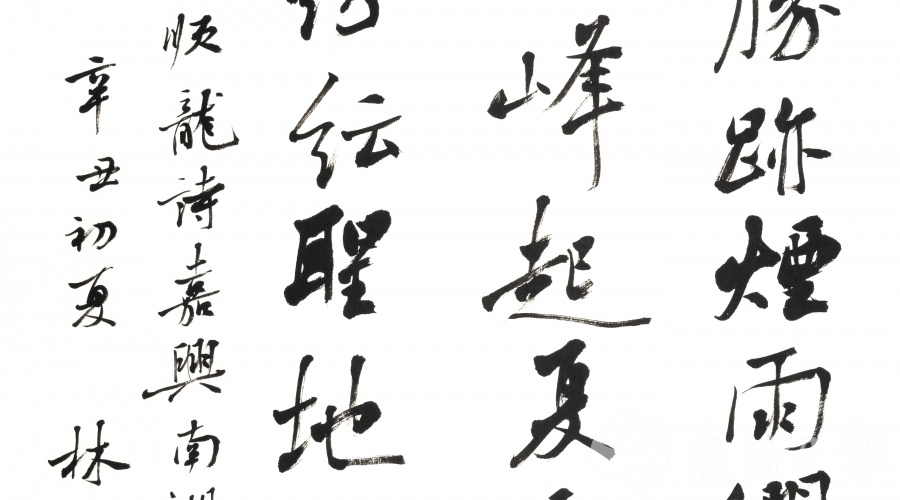 勝跡煙雨
峰起夏
紜聖地
順龍詩嘉興南湖
辛丑初夏林